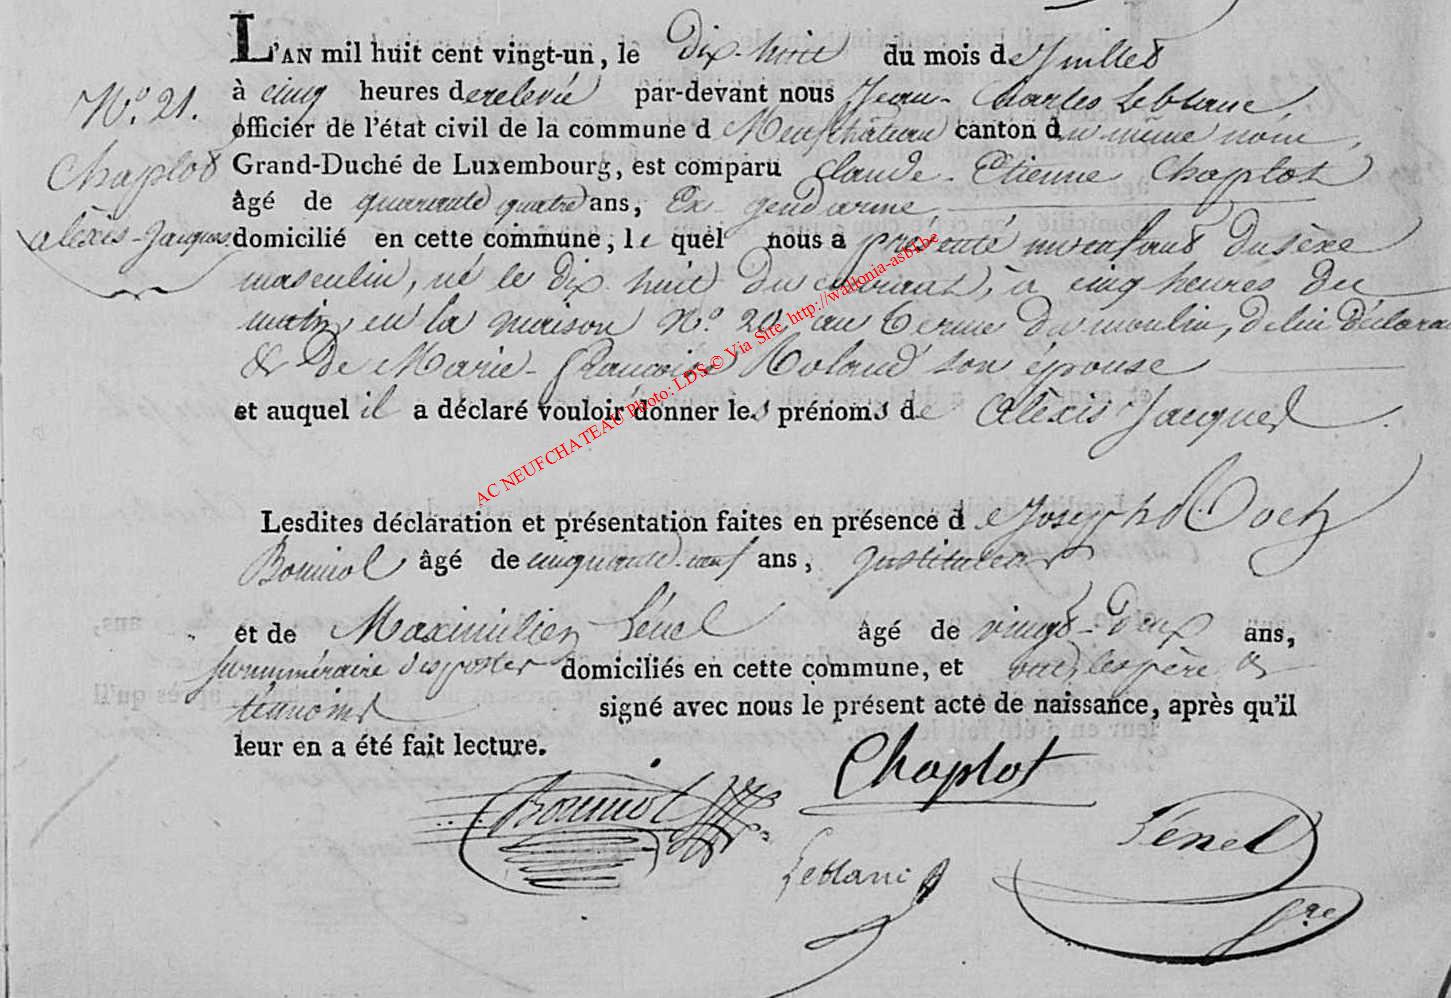 L'AN mil huit cent vingt-un, le Dix-huit du mois de Juillet
N.° 21.
à cinq heures de relevée par-devant nous Jean-Charles Leblanc
officier de l'état civil de la commune d Neufchâteau canton du même nom,
Chaplot
Grand-Duché de Luxembourg, est comparu Claude-Etienne Chaplot
âgé de quarante quatre ans, Ex-gendarme,
alèxis-Jacques
domicilié en cette commune, le quel nous a présenté un enfant du sèxe
masculin, né le dix huit du courant, à cinq heures du
matin en la maison N.° 20 au Terme du moulin, de lui déclarant
& de Marie-Françoise Roland son épouse
et auquel il a déclaré vouloir donner les prénoms de Alèxis Jacques.
Lesdites déclaration et présentation faites en présence de Joseph
Bouniol âgé de cinquante-neuf ans, Instituteur
et de Maximilien Lénel âgé de vingt-deux ans,
surnuméraire des postes domiciliés en cette commune, et ont les père &
témoins signé avec nous le présent acte de naissance, après qu'il
leur en a été fait lecture.
Chaplot
Bouniol
Lénel
Leblanc
AC NEUFCHATEAU Photo: LDS © Via Site http://wallonia-asbl.be